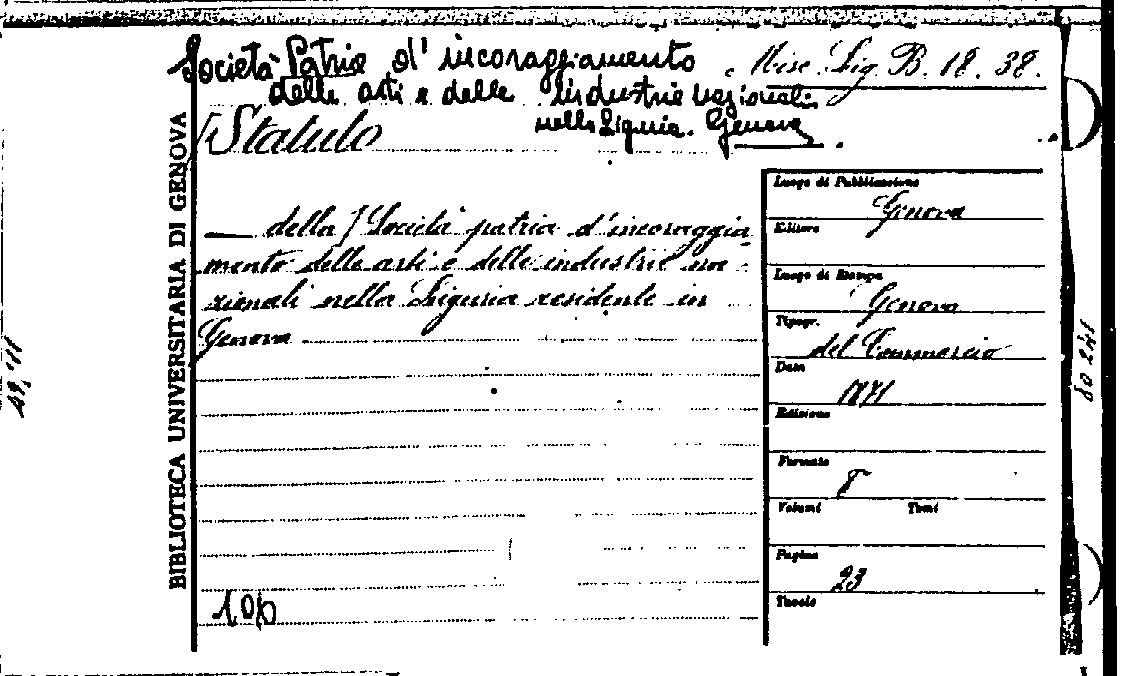 Società Patria d'incoraggiamento
Misc. Lig. B. 18. 38.
delle arti e delle Industrie nazionali
nella Liguria. Genova
[Statuto
— della] Società patria d'incoraggia
mento delle arti e delle industrie na-
zionali nella Liguria residente in
Genova
BIBLIOTECA UNIVERSITARIA DI GENOVA
Luogo di Pubblicazione
Genova
Editore
Luogo di Stampa
Genova
Tipogr.
del Commercio
Data
1871
Edizione
Formato
8
Volumi Tomi
Pagine
23
Tavole